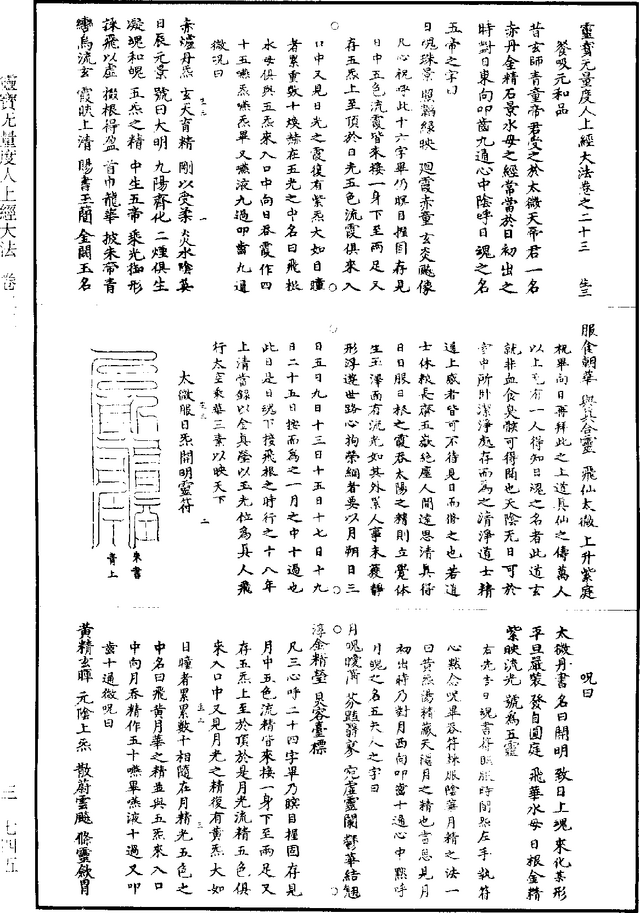 靈寶无量度人上經大法卷之二十三　生三
餐吸元和品
昔玄師青童帝君受之於太微天帝君一名
赤丹金精石景水母之經常當於日初出之
時對日東向叩齒九通心中陰呼日魂之名
五帝之字曰
日魂珠景 照韜綠映 廻霞赤童 玄炎飈像
凡心祝呼此十六字畢仍瞑目握固存見
日中五色流霞皆來接一身下至兩足又
存五炁上至頂於日光五色流霞俱來入
口中又見日光之霞復有紫炁大如目瞳
者累重數十煥赫在五光之中名曰飛根
水母俱與五炁來入口中向日吞霞作四
十五嚥炁嚥炁畢又嚥液九過叩齒九通
微咒曰
赤爐丹炁 玄天育精 剛以受柔 炎水陰英
日辰元景 號曰大明 九陽齊化 二煙俱生
凝魂和魄 五炁之精 中生五帝 乘光御形
採飛以虛 掇根得盈 首巾龍華 披朱帶青
轡烏流玄 霞映上清 賜書玉簡 金閣玉名
服食朝華 與真合靈 飛仙太微 上升紫庭
祝畢向日再拜此之上道真仙之傳萬人
以上无有一人得知日魂之名者此道玄
妙非血食臭骸可得聞也天陰无日可於
室中所卧潔淨處存而為之清淨道士精
通上感者皆可不待見日而修之也若道
士休糧長齋五嶽絕塵人間遠思清真得
日日服日根之霞吞太陽之精則立覺体
生玉澤面有流光如其外累人事未獲靜
形浮遊世路心拘榮網者要以月朔日三
日五日九日十三日十五日十七日十九
日二十五日按而為之一月之中十過也
此日是日魂下接飛根之時行之十八年
上清當錄以金真蔭以玉光位為真人飛
行太空乘華三素以映天下
太微服日炁開明靈符
朱書
青上
咒曰
太微丹書 名曰開明 致日上魂 來化某形
平旦嚴裝 發自圓庭 飛華水母 日根金精
紫映流光 號為五靈
右先書日魂書符臨服時閉炁左手執符
心默念咒畢吞符採服陰華月精之法一
曰黃炁陽精藏天隱月之精也當思見月
初出時乃對月西向叩齒十通心中黙呼
月魄之名五夫人之字曰
月魄曖蕭 芬豔翳寥 宛虛靈蘭 鬱華結翹
淳金精瑩 炅容臺標
凡三心呼二十四字畢乃瞑目握固存見
月中五色流精皆來接一身下至兩足又
存五炁上至於頂於是月光流精五色俱
來入口中又見月光之精復有黃炁大如
目瞳者累累數十相隨在月精光五色之
中名曰飛黃月華之精並與五炁來入口
中向月吞精作五十嚥畢嚥液十過又叩
齒十過微咒曰
黃精玄暉 元陰上炁 散蔚雲飈 條靈歛胃
靈寶无量度人上經大法　卷二三
三　七四五